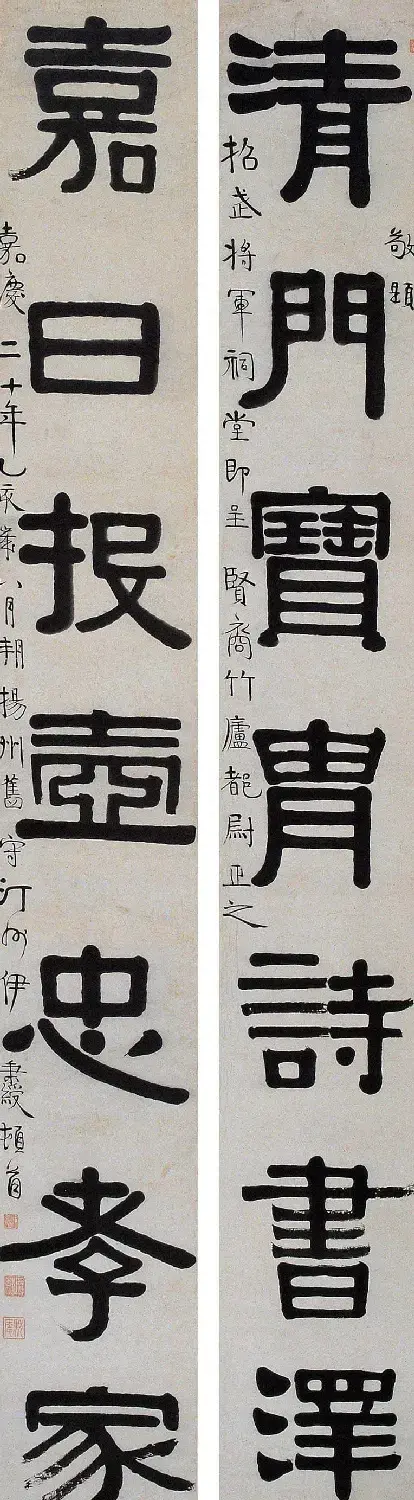 清門寶胄詩書澤
敬題
招武將軍祠堂即呈賢裔竹廬都尉正之
嘉日投壺忠孝家
嘉慶二十年乙亥歲八月朔揚州舊守汀州伊秉綬頓首